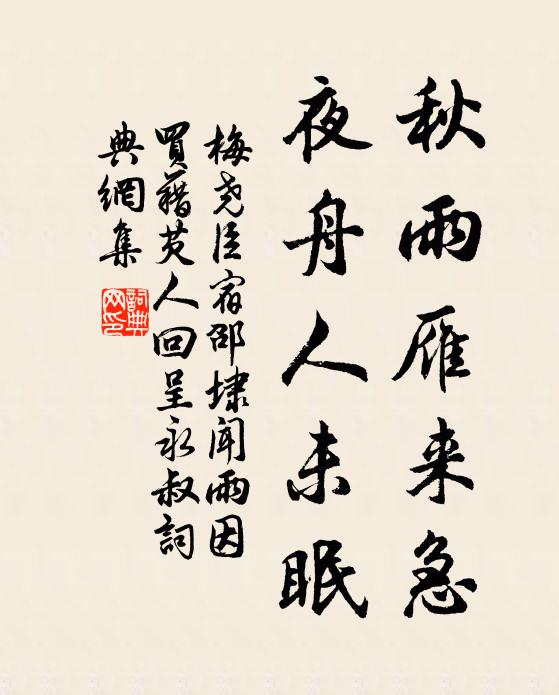 秋雨雁来急
夜舟人未眠
梅尧臣宿邵埭闻雨因
買藕芡人回呈永叔詞
典網集
詞典
网印